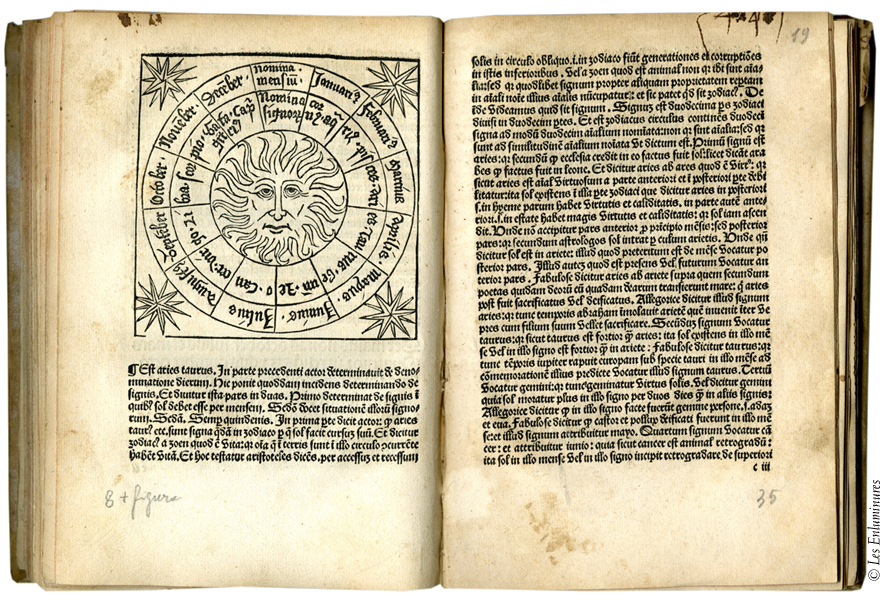 Nomina mensiū.
Januari⁹
Februari⁹
Martius
Aprilis
Mayus
Junius
Julius
August⁹
September
October
Nouēber
Decēber
Nomina signor
pisces
aries
taurus
Gemi
Leo
can
virgo
libra
scorpio
¶ Est aries taurus. In parte precedenti actor determinauit de deno
minatione dierum. Hic ponit quoddam incidens determinando de
signis. Et diuitur ista pars in duas. Primo determinat de signis ī
quibꝰ sol debet esse per mensem. Sedō docet situationē illorū signo
rum. Sedā. Semꝑ quindenis. In prima ꝑte dicit actor: ꝙ aries
tau⁹ etc. sunt signa qdā in zodiaco ꝑ q̄ sol facit cursū suū. Et dicitur
zodiac⁹ a zoen quod ē vita: qꝛ oīa q̄ ī terris sunt ī illo circulo ꝑcurrēte
habēt vitā. Et hoc testatur aristoteles dicēs. per accessum et recessum
8 + figura
19
solis in circulo obliquo .i. in zodiaco fiūt generationes et corruptiōes
in istis inferioribus. Vel a zoen quod est animal non qꝛ ibi sint aīa
lia: sed qꝛ quodlibet signum propter aliquam proprietatem reptam
in aīali noīe illius aīalis nūcupatur: et sic patet qd sit zodiac⁹. De
īde videamus quid sit signum. Signum est duodecima ꝑs zodiaci
diuisi in duodecim ꝑtes. Et est zodiacus circulus continēs duodecī
signa ad modū duodecim aīalium nomīata: non qꝛ sint aīalia: sed qꝛ
sunt ad similitudinē aīalium noīata vt dictum est. Primū signū est
aries: qꝛ secundū ꝙ ecclesia credit in eo factus fuit sol: licet dicāt ara
bes ꝙ factus fuit in leone. Et dicitur aries ab ares quod ē virt⁹: qꝛ
sicut aries est aīal virtuosum a parte anteriori et ī posteriori ꝑte debi
litatur: ita sol existens ī illa ꝑte zodiaci que dicitur aries in posteriori
.i. in hyeme parum habet virtutis et caliditatis. in parte autē ante
riori .i. in estate habet magis virtutis et caliditatis: qꝛ sol iam ascen
dit. Unde nō accipitur pars anterior ꝓ prīcipio mēsis: sed posterior
pars: qꝛ secundum astrologos sol intrat ꝑ culum arietis. Unde qn̄
dicitur sol est in ariete: illud quod preteritum est de mēse vocatur po
sterior pars. Illud autem quod est presens vel futurum vocatur an
terior pars. Fabulose dicitur aries ab ariete supra quem secundum
poetas quidam deorū cū quadam dearum transierunt mare: q̄ aries
post fuit sacrificatus vel deificatus. Allegorice dicitur illud signum
aries: qꝛ tunc temporis abraham īmolauit arietē quē inuenit īter ve
pres cum filium suum vellet sacrificare. Secūdum signum vocatur
taurus: qꝛ sicut taurus est fortior ꝙ aries: ita sol existens in illo mē
se vel in illo signo est fortior ꝙ in ariete: Fabulose dicitur taurus: qꝛ
tunc tēporis iupiter rapuit europam sub specie tauri in illo mēse ad
cōmemorationem illius predicte vocatur illud signum taurus. Tertiū
vocatur gemini: qꝛ tunc geminatur virtus solis. vel dicitur gemini
quia sol moratur plus in illo signo per duos dies ꝙ in aliis signis:
Allegorice dicitur ꝙ in illo signo facte fuerūt gemine persone .s. adam
et eua. Fabulose dicitur ꝙ castor et pollux deificati fuerunt in illo mē
se: et illud signum attribuitur mayo. Quartum signum vocatur cā
cer: et attribuitur iunio: quia sicut cancer est animal retrogradū:
ita sol in illo mense vel in illo signo incipit retrogradare de superiori
c iii
35
© Les Enluminures